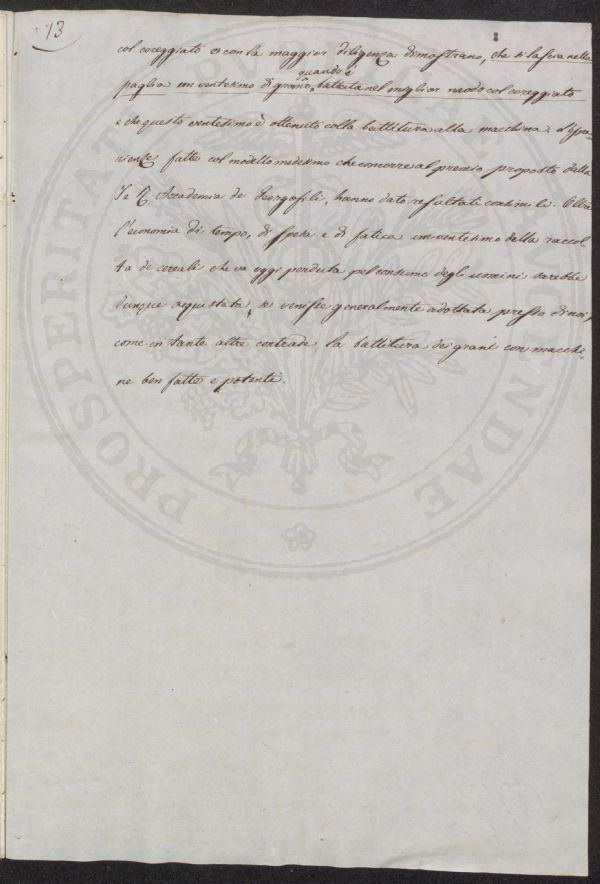 73
col coreggiato e con la maggior diligenza dimostrano, che si lascia nella
quando è
paglia un ventesimo di grano, battuta nel miglior modo col coreggiato
e che questo ventesimo è ottenuto colla battitura alla macchina. Espe-
rienze fatte col modello medesimo che concorre al premio proposto dalla
I e R Accademia de Georgofili, hanno dato resultati consimili. Oltre
l'economia di tempo, di spesa e di fatica un ventesimo della raccol-
ta di cereali che va oggi perduta pel consumo degli uomini sarebbe
dunque acquistata, se venisse generalmente adottata presso di noi,
come in tante altre contrade la battitura dei grani con macchi-
ne ben fatte e potenti.
PROSPERITATI PUBLICAE AUGENDAE